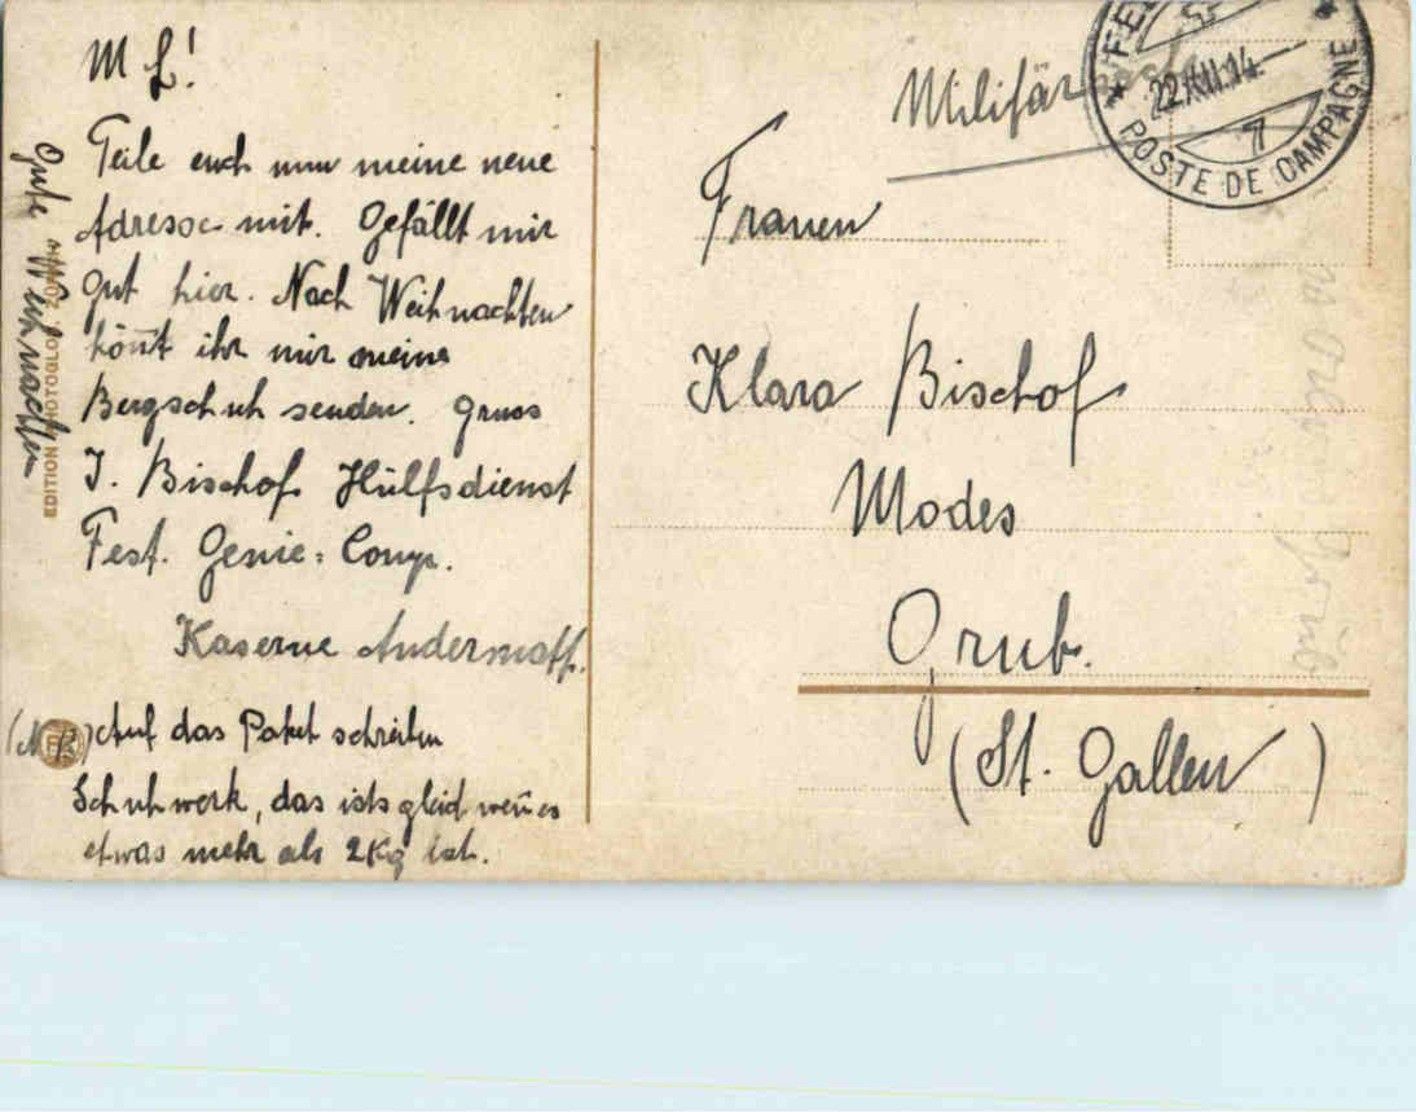 M L!
Teile euch nun meine neue
Adresse mit. Gefällt mir
gut hier. Nach Weihnachten
kön̄t ihr mir meine
Bergschuh senden. Gruss
J. Bischof Hülfsdienst
Fest. Genie: Comp.
Kaserne Andermatt.
(NB) Auf das Paket schreiben
Schuhwerk, das ists gleich wen̄ es
etwas mehr als 2 Kg ist.
Gute Weihnachten
EDITION PHOTOGLOB
Militär
22.XII.14.
7
POSTE DE CAMPAGNE
Frauen
Klara Bischof
Modes
Grub.
(St. Gallen)